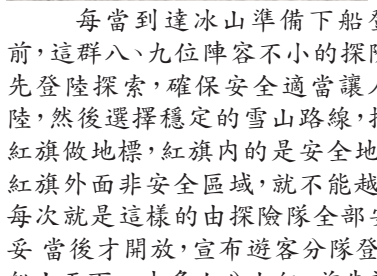 每當到達冰山準備下船登
前，這群八、九位陣容不小的探險
先登陸探索，確保安全適當讓
陸，然後選擇穩定的雪山路線，
紅旗做地標，紅旗內的是安全地
紅旗外面非安全區域，就不能越
每次就是這樣的由探險隊全部安
妥當後才開放，宣布遊客分隊登